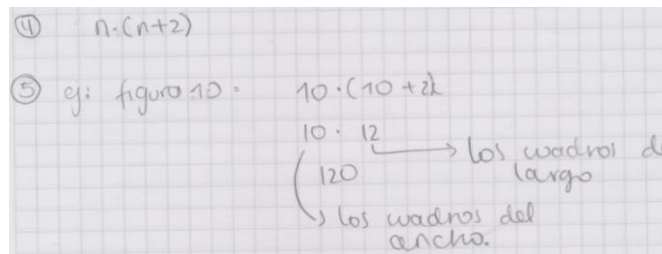 ④ n·(n+2)
⑤ ej: figura 10: 10·(10+2)
10 · 12
los cuadros d
largo
120
los cuadros del
ancho.